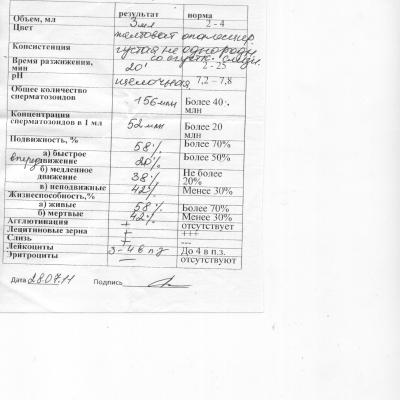 результат норма
Объем, мл 3мл 2 - 4
Цвет желтоват опалесцир
Консистенция густая неоднородн.
со сгустк. слизи
Время разжижения, мин 20' 2 - 25
pH щелочная 7,2 – 7,8
Общее количество сперматозоидов 156 млн Более 40 млн
Концентрация сперматозоидов в 1 мл 52 млн Более 20 млн
Подвижность, % 58% Более 70%
а) быстрое движение вперед 20% Более 50%
б) медленное движение 38% Не более 20%
в) неподвижные 42% Менее 30%
Жизнеспособность,%
а) живые 58% Более 70%
б) мертвые 42% Менее 30%
Агглютинация + отсутствует
Лецитиновые зерна + +++
Слизь + ---
Лейкоциты 3-4 в п.з До 4 в п.з.
Эритроциты — отсутствуют
Дата 28.07.11 Подпись